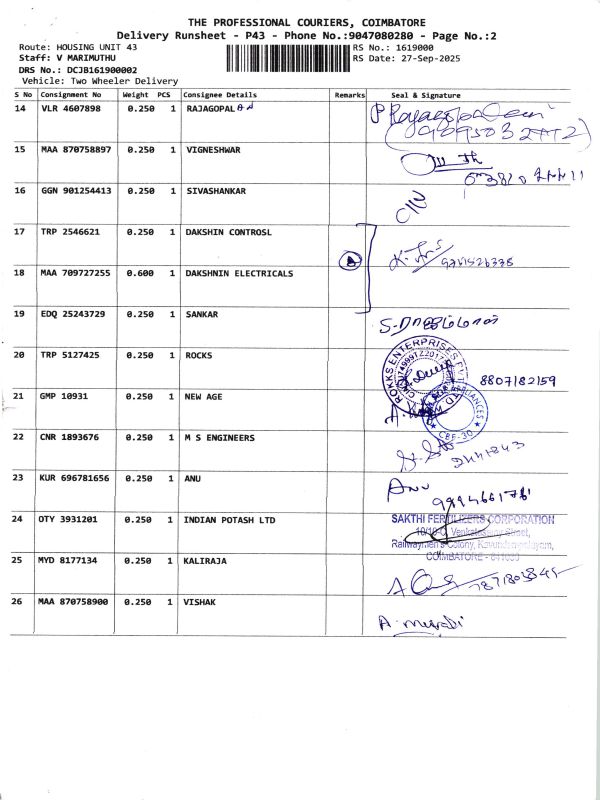 THE PROFESSIONAL COURIERS, COIMBATORE
Delivery Runsheet - P43 - Phone No.:9047080280 - Page No.:2
Route: HOUSING UNIT 43
RS No.: 1619000
Staff: V MARIMUTHU
RS Date: 27-Sep-2025
DRS No.: DCJB161900002
Vehicle: Two Wheeler Delivery
S No Consignment No Weight PCS Consignee Details Remarks Seal & Signature
14 VLR 4607898 0.250 1 RAJAGOPAL
15 MAA 870758897 0.250 1 VIGNESHWAR
16 GGN 901254413 0.250 1 SIVASHANKAR
17 TRP 2546621 0.250 1 DAKSHIN CONTROSL
18 MAA 709727255 0.600 1 DAKSHNIN ELECTRICALS
19 EDQ 25243729 0.250 1 SANKAR
20 TRP 5127425 0.250 1 ROCKS
ROKKS ENTERPRISES
8807182159
21 GMP 10931 0.250 1 NEW AGE
CBE-30
22 CNR 1893676 0.250 1 M S ENGINEERS
23 KUR 696781656 0.250 1 ANU
Anu
24 OTY 3931201 0.250 1 INDIAN POTASH LTD
SAKTHI FERTILIZERS CORPORATION
Venkatesamy Street,
Railwaymen's Colony,
COIMBATORE
25 MYD 8177134 0.250 1 KALIRAJA
26 MAA 870758900 0.250 1 VISHAK